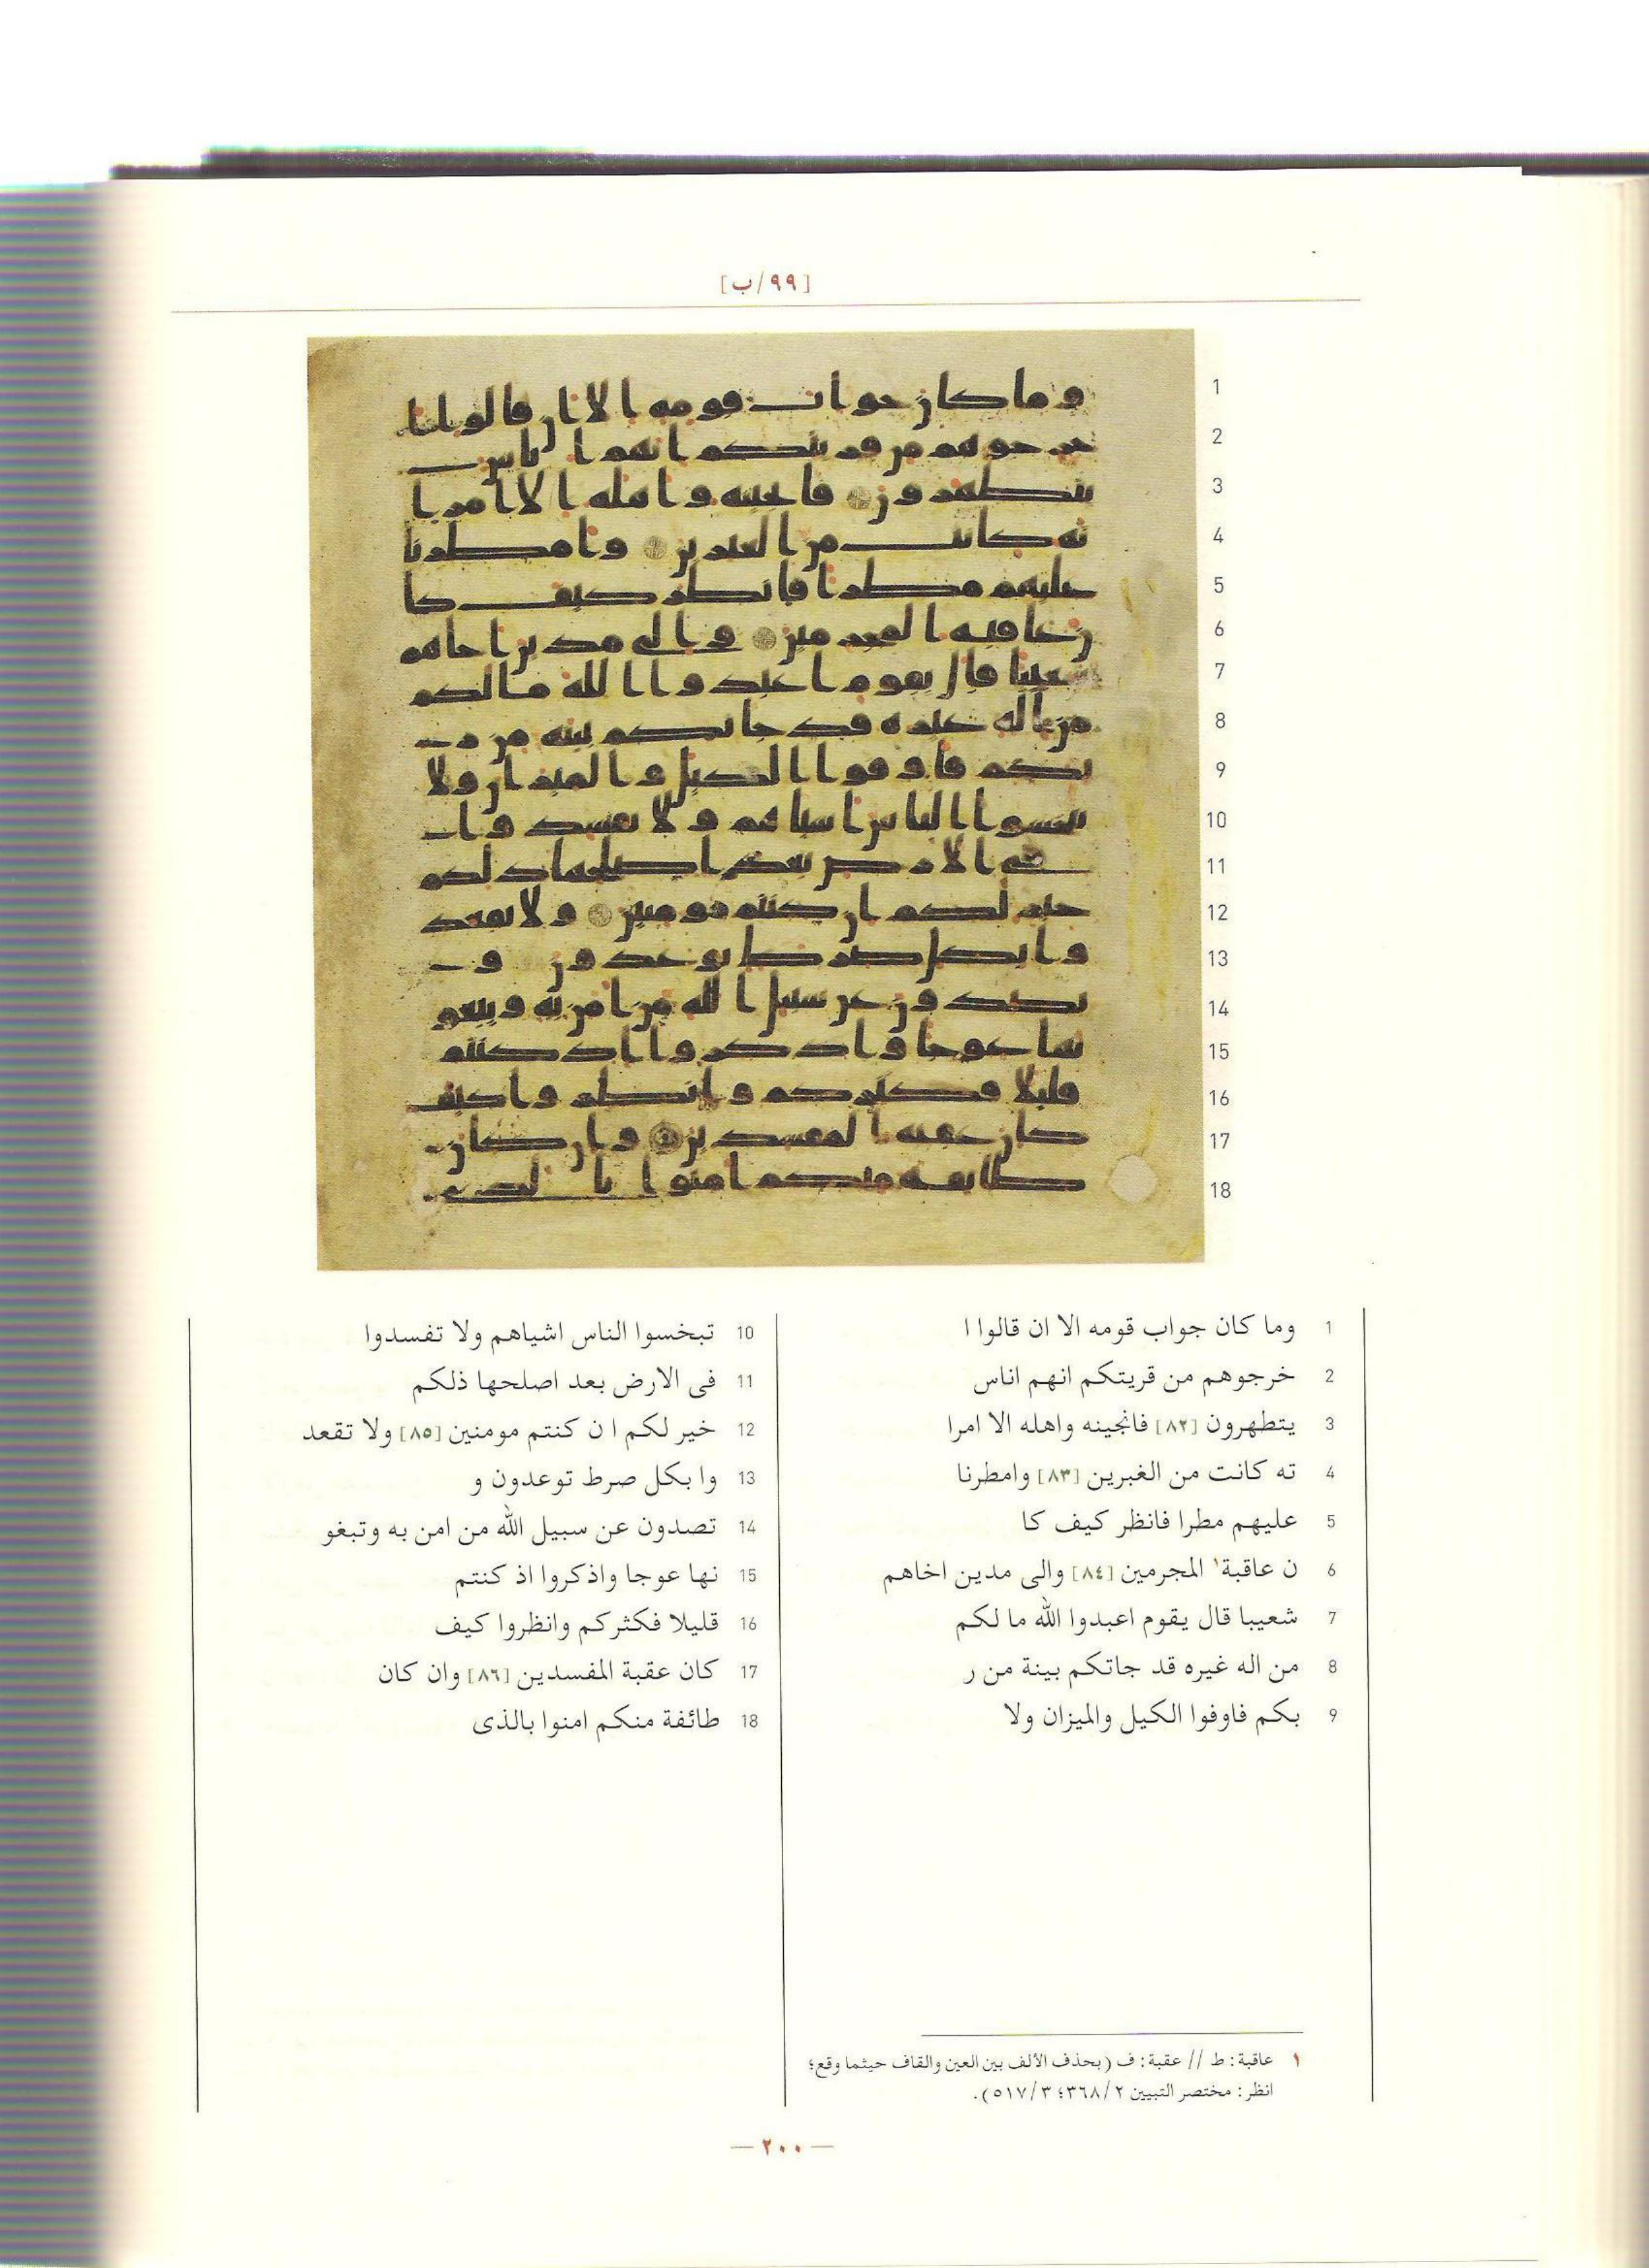 [٩٩/ب]
1 وما كان جواب قومه الا ان قالوا ا
2 خرجوهم من قريتكم انهم اناس
3 يتطهرون [٨٢] فانجينه واهله الا امرا
4 ته كانت من الغبرين [٨٣] وامطرنا
5 عليهم مطرا فانظر كيف كا
6 ن عاقبة١ المجرمين [٨٤] والى مدين اخاهم
7 شعيبا قال يقوم اعبدوا الله ما لكم
8 من اله غيره قد جاتكم بينة من ر
9 بكم فاوفوا الكيل والميزان ولا
10 تبخسوا الناس اشياهم ولا تفسدوا
11 فى الارض بعد اصلحها ذلكم
12 خير لكم ا ن كنتم مومنين [٨٥] ولا تقعد
13 وا بكل صرط توعدون و
14 تصدون عن سبيل الله من امن به وتبغو
15 نها عوجا واذكروا اذ كنتم
16 قليلا فكثركم وانظروا كيف
17 كان عقبة المفسدين [٨٦] وان كان
18 طائفة منكم امنوا بالذى
١ عاقبة: ط // عقبة: ف (بحذف الألف بين العين والقاف حيثما وقع؛
انظر: مختصر التبيين ٢/٣٦٨؛ ٣/٥١٧).
— ٢٠٠ —